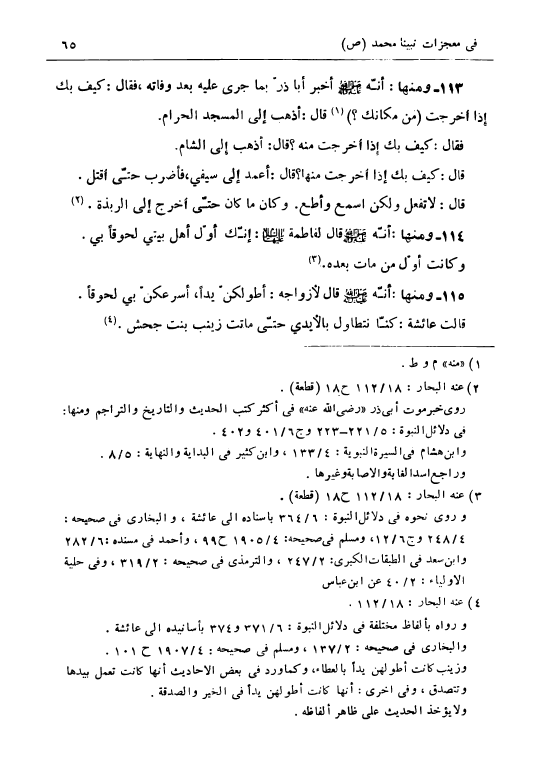 فى معجزات نبينا محمد (ص) ٦٥
١١٣ـ ومنها : أنّه ﷺ أخبر أبا ذرّ بما جرى عليه بعد وفاته ،فقال : كيف بك
إذا اخرجت (من مكانك ؟) (١) قال : أذهب إلى المسجد الحرام.
فقال : كيف بك إذا اخرجت منه ؟قال: أذهب إلى الشام.
قال : كيف بك إذا اخرجت منها؟قال: أعمد إلى سيفي،فأضرب حتّى اقتل .
قال : لاتفعل ولكن اسمع وأطع. وكان ما كان حتّى اخرج إلى الربذة . (٢)
١١٤ـ ومنها :أنّه ﷺ قال لفاطمة عليها السلام : إنّك أوّل أهل بيتي لحوقاً بي .
وكانت أوّل من مات بعده. (٣)
١١٥ـ ومنها : أنّه ﷺ قال لأزواجه : أطولكنّ يداً، أسرعكنّ بي لحوقاً .
قالت عائشة : كنّا نتطاول بالأيدي حتّى ماتت زينب بنت جحش . (٤)
١) «منه» م و ط .
٢) عنه البحار : ١١٢/١٨ ح١٨ (قطعة) .
روى خبر موت أبى ذر «رضى الله عنه» فى أكثر كتب الحديث والتاريخ والتراجم ومنها:
فى دلائل النبوة : ٢٢١/٥–٢٢٣ وج٤٠١/٦ و٤٠٢ .
وابن هشام فى السيرة النبوية : ١٣٣/٤ ، وابن كثير فى البداية والنهاية : ٨/٥ .
وراجع اسد الغابة والاصابة وغيرها .
٣) عنه البحار : ١١٢/١٨ ح١٨ (قطعة) .
و روى نحوه فى دلائل النبوة : ٣٦٤/٦ باسناده الى عائشة ، و البخارى فى صحيحه :
٢٤٨/٤ وج١٢/٦، ومسلم فى صحيحه: ١٩٠٥/٤ ح٩٩ ، وأحمد فى مسنده :٢٨٢/٦
وابن سعد فى الطبقات الكبرى: ٢٤٧/٢ ، والترمذى فى صحيحه : ٣١٩/٢ ، وفى حلية
الاولياء : ٤٠/٢ عن ابن عباس
٤) عنه البحار : ١١٢/١٨ .
و رواه بألفاظ مختلفة فى دلائل النبوة : ٣٧١/٦ و٣٧٤ بأسانيده الى عائشة .
والبخارى فى صحيحه : ١٣٧/٢ ، ومسلم فى صحيحه : ١٩٠٧/٤ ح ١٠١ .
وزينب كانت أطولهن يداً بالعطاء، وكما ورد فى بعض الاحاديث أنها كانت تعمل بيدها
وتتصدق ، وفى اخرى : أنها كانت أطولهن يداً فى الخير والصدقة .
ولا يؤخذ الحديث على ظاهر ألفاظه .